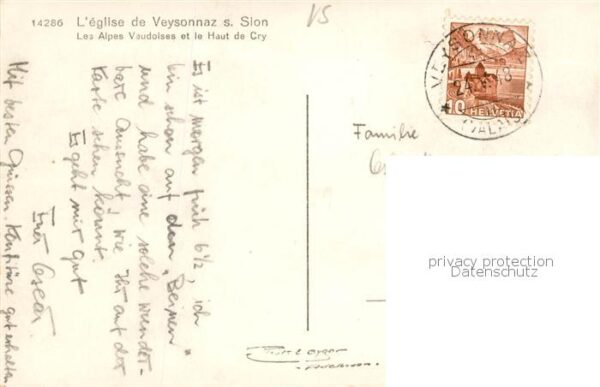 14286 L'église de Veysonnaz s. Sion
Les Alpes Vaudoises et le Haut de Cry
VS
VEYSONNAZ
24. 48
(VALAIS)
10 HELVETIA
Familie
privacy protection
Datenschutz
Es ist morgen früh 6½, ich
bin schon auf den "Beinen"
und habe eine solche wunder-
bare Aussicht! wie Ihr auf der
Karte sehen könnt.
Es geht mir gut
Euer Oscar.
Mit besten Grüssen. Konfitüre gut erhalten